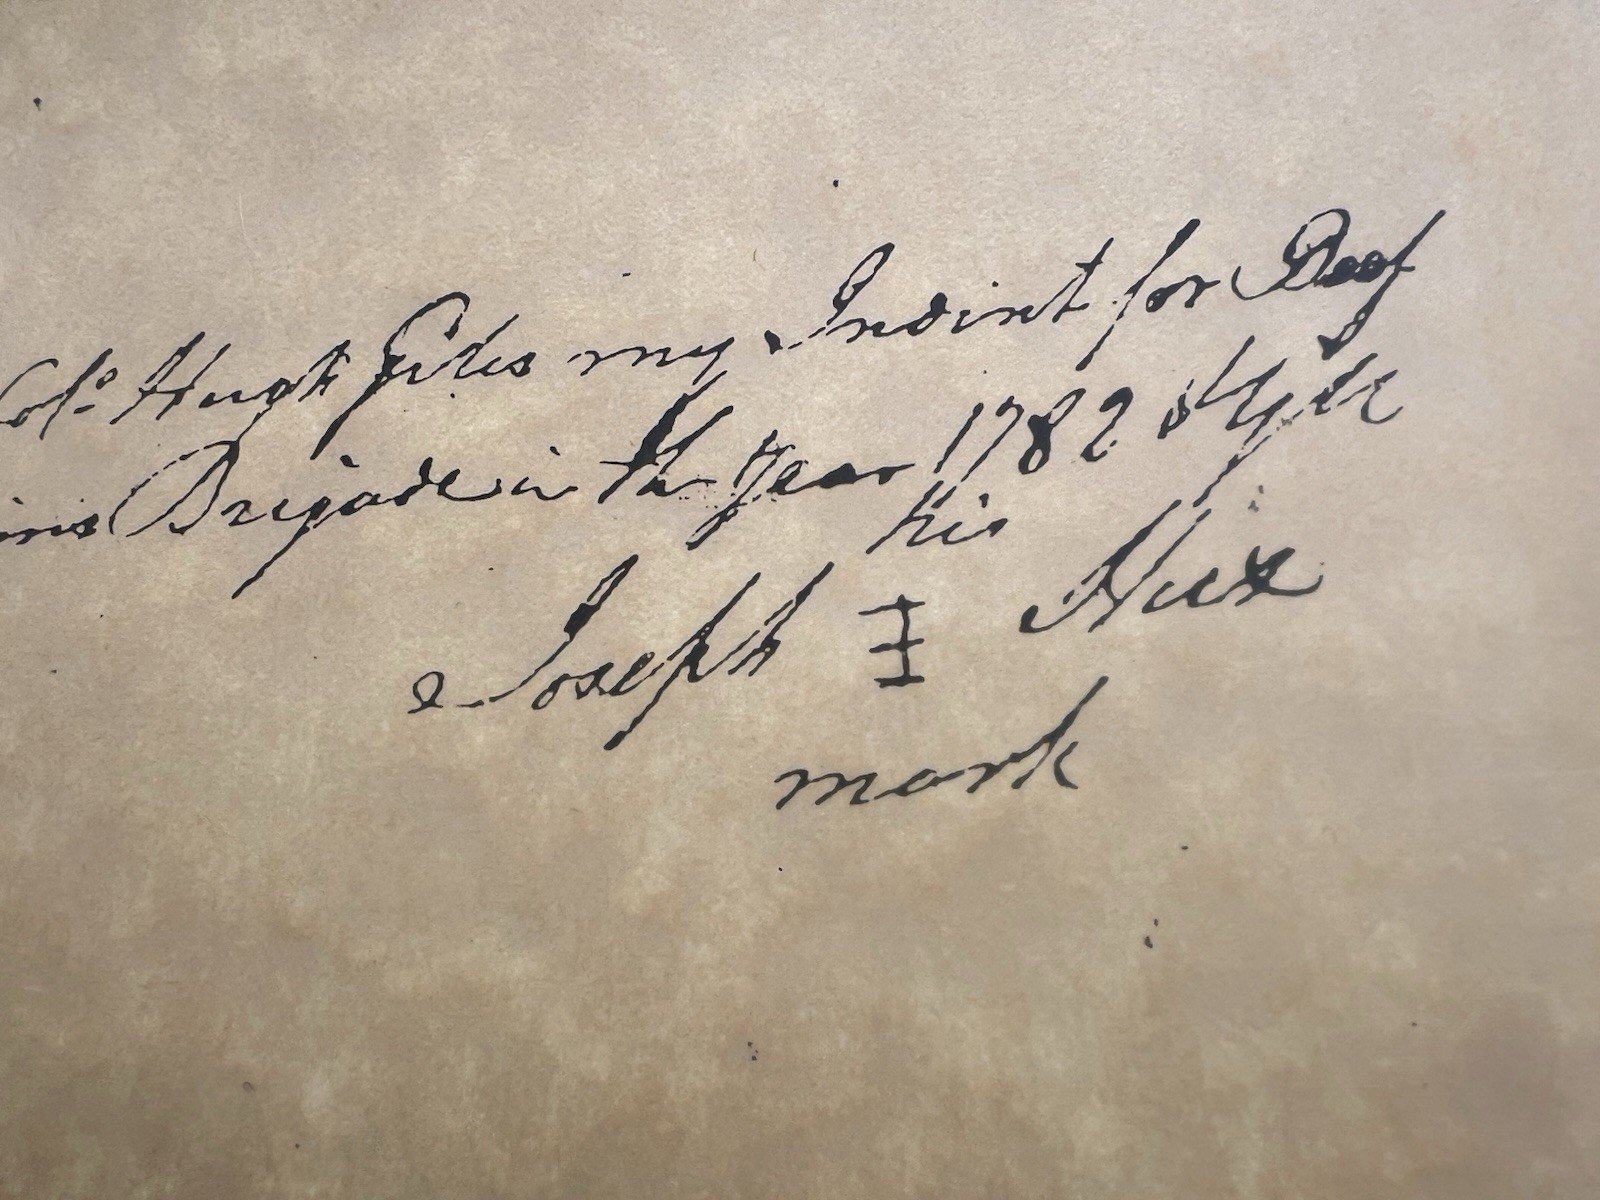 Colo. Hugh Giles my Indint for Beef
Brigade in the year 1782
his
Joseph I Hux
mark